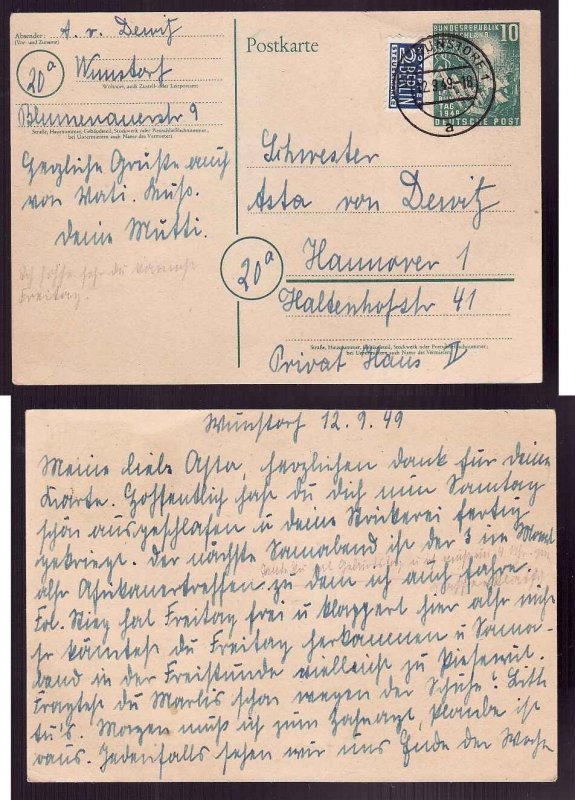 Absender: A. v. Dewitz
(Vor- und Zuname)
20a
Wunstorf
Wohnort, auch Zustell- oder Leitpostamt
Blumenauerstr 9
Straße, Hausnummer, Gebäudeteil, Stockwerk oder Postschließfachnummer;
bei Untermietern auch Name des Vermieters
Herzliche Grüße auch
von Vati. Kuss.
Deine Mutti.
Ich hoffe sehr du kannst
Freitag.
Postkarte
NOTOPFER
2 BERLIN
STEUERMARKE
WUNSTORF 1
12.9.49-18
a
BUNDESREPUBLIK
DEUTSCHLAND
10
TAG
1949
DEUTSCHE POST
Schwester
Asta von Dewitz
Hannover 1
20a
Haltenhofstr 41
Straße, Hausnummer, Gebäudeteil, Stockwerk oder Postschließfachnummer;
bei Untermietern auch Name des Vermieters
Privat Haus II
Wunstorf 12.9.49
Meine liebe Asta, herzlichen dank für deine
Karte. Hoffentlich hast du dich nun Samstag
schön ausgeschlafen u deine Strickerei fertig
gekriegt. Der nächste Sonnabend ist der 3 im Monat
also Afrikanertreffen zu dem ich auch fahre.
Frl. Stieg hat Freitag frei u klappert hier also nicht
Fr könntest du Freitag herkommen u Sonna-
bend in der Freistunde vielleicht zu
Fragtest du Marlis schon wegen der Schuhe? Bitte
tu's. Morgen muß ich zum Zahnarzt,
raus. Jedenfalls sehen wir uns Ende der Woche